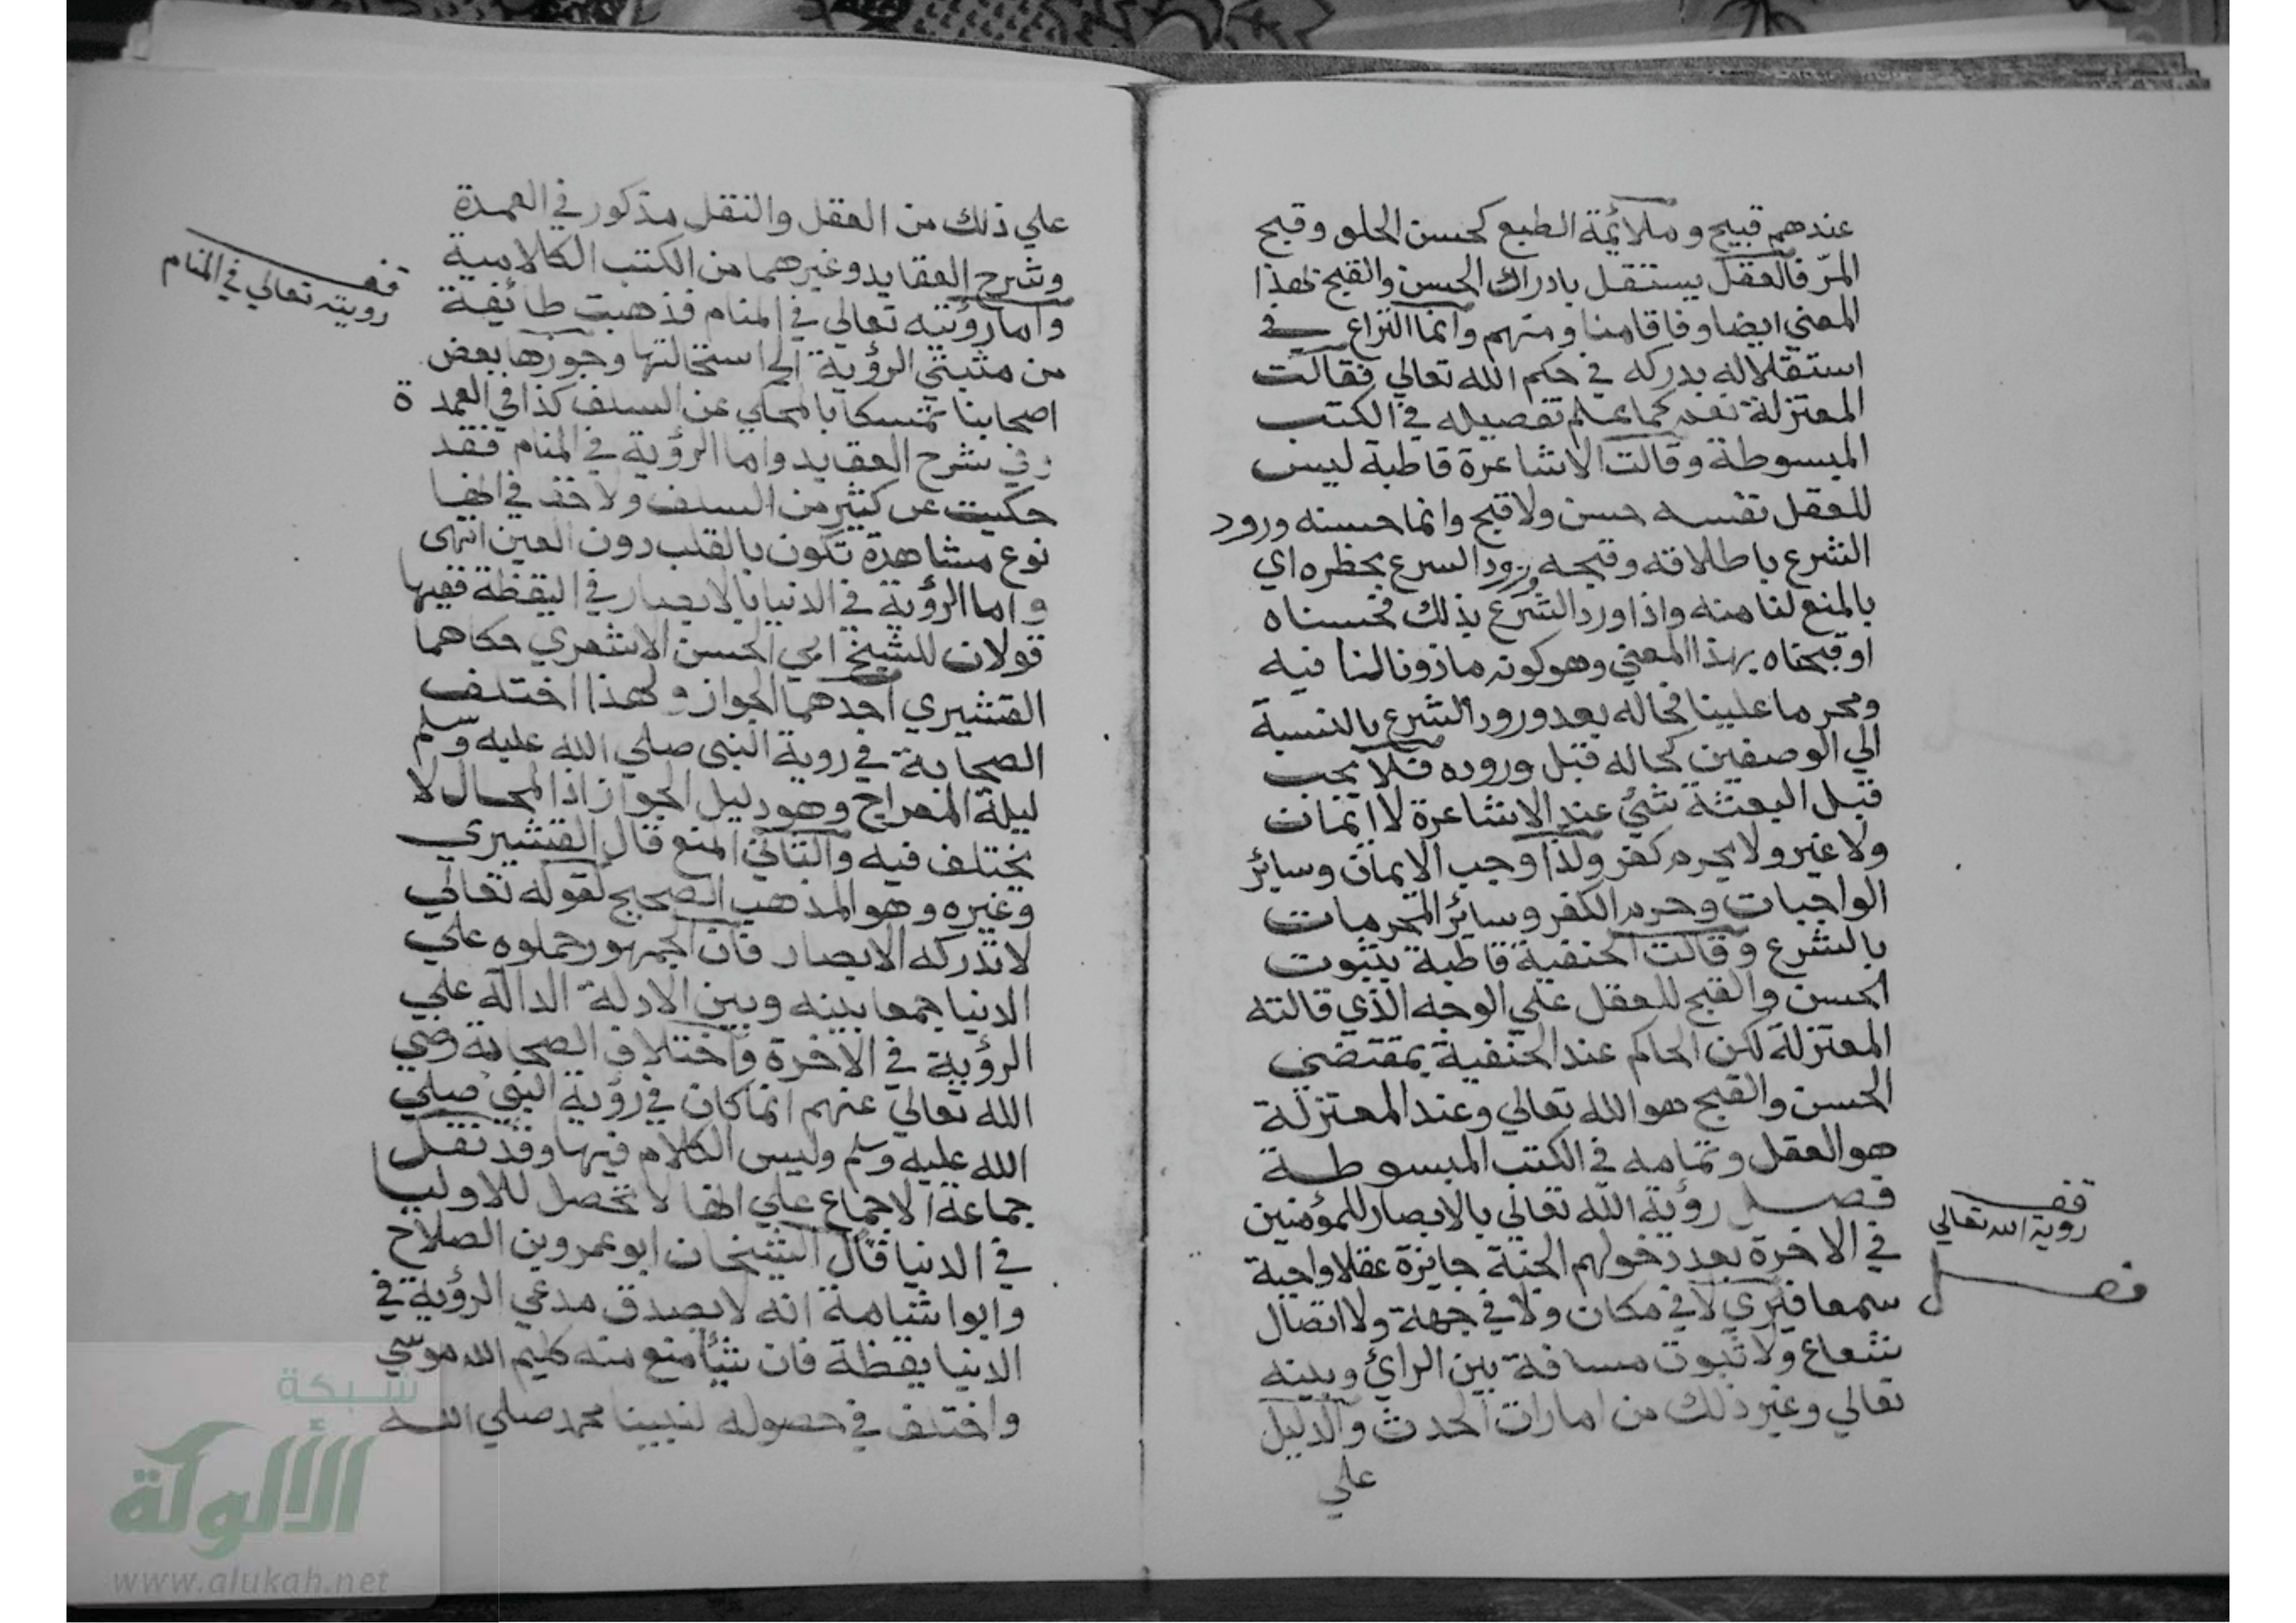 عندهم قبيح وملائمة الطبع كحسن الحلو وقبح
المرّ فالعقل يستقل بادراك الحسن والقبح بهذا
المعني ايضا وفاقا منا ومنهم وانما النزاع في
استقلاله بدركه في حكم الله تعالي فقالت
المعتزلة نعم كما علم تفصيله في الكتب
المبسوطة وقالت الاشاعرة قاطبة ليس
للعقل نفسه حسن ولا قبح وانما حسنه ورود
الشرع باطلاقه وقبحه ورود الشرع بحظره اي
بالمنع لنا منه واذا ورد الشرع بذلك فحسناه
او قبحناه بهذا المعني وهو كونه ماذونا لنا فيه
ومحرما علينا فحاله بعد ورود الشرع بالنسبة
الي الوصفين كحاله قبل وروده فلا يجب
قبل البعثة شئ عند الاشاعرة لا ايمان
ولا غير ولا يحرم كفر ولذا وجب الايمان وسائر
الواجبات وحرم الكفر وسائر المحرمات
بالشرع وقالت الحنفية قاطبة بثبوت
الحسن والقبح للعقل علي الوجه الذي قالته
المعتزلة لكن الحاكم عند الحنفية بمقتضي
الحسن والقبح هو الله تعالي وعند المعتزلة
هو العقل وتمامه في الكتب المبسوطة
فصل رؤية الله تعالي بالابصار للمؤمنين
في الاخرة بعد دخولهم الجنة جايزة عقلا واجبة
سمعا فيري لا في مكان ولا في جهة ولا اتصال
شعاع ولا ثبوت مسافة بين الرائ وبينه
تعالي وغير ذلك من امارات الحدث والدليل
علي
قف
روية الله تعالي
فصل
علي ذلك من العقل والنقل مذكور في العمدة
وشرح العقايد وغيرهما من الكتب الكلامية
واما رؤيته تعالي في المنام فذهبت طائفة
من مثبتي الرؤية الي استحالتها وجوزها بعض
اصحابنا تمسكا بالمحكي عن السلف كذا في العمدة
وفي شرح العقايد واما الرؤية في المنام فقد
حكيت عن كثير من السلف ولا خف في انها
نوع مشاهدة تكون بالقلب دون العين انتهى
واما الرؤية في الدنيا بالابصار في اليقظة ففيها
قولان للشيخ ابي الحسن الاشعري حكاهما
القشيري احدهما الجواز ولهذا اختلف
الصحابة في روية النبي صلي الله عليه وسلم
ليلة المعراج وهو دليل الجواز اذ المحال لا
يختلف فيه والثاني المنع قال القشيري
وغيره وهو المذهب الصحيح لقوله تعالي
لا تدركه الابصار فان الجمهور حملوه علي
الدنيا جمعا بينه وبين الادلة الدالة علي
الرؤية في الاخرة واختلاف الصحابة رضي
الله تعالي عنهم انما كان في رؤية النبي صلي
الله عليه وسلم وليس الكلام فيها وقد نقل
جماعة الاجماع علي انها لا تحصل للاوليا
في الدنيا قال الشيخان ابو عمرو بن الصلاح
وابو اشامة انه لا يصدق مدعي الرؤية في
الدنيا يقظة فان شيأ منع منه كليم الله موسي
واختلف في حصوله لنبينا محمد صلي الله
قف
رويته تعالي في المنام
شبكة
الألوكة
www.alukah.net